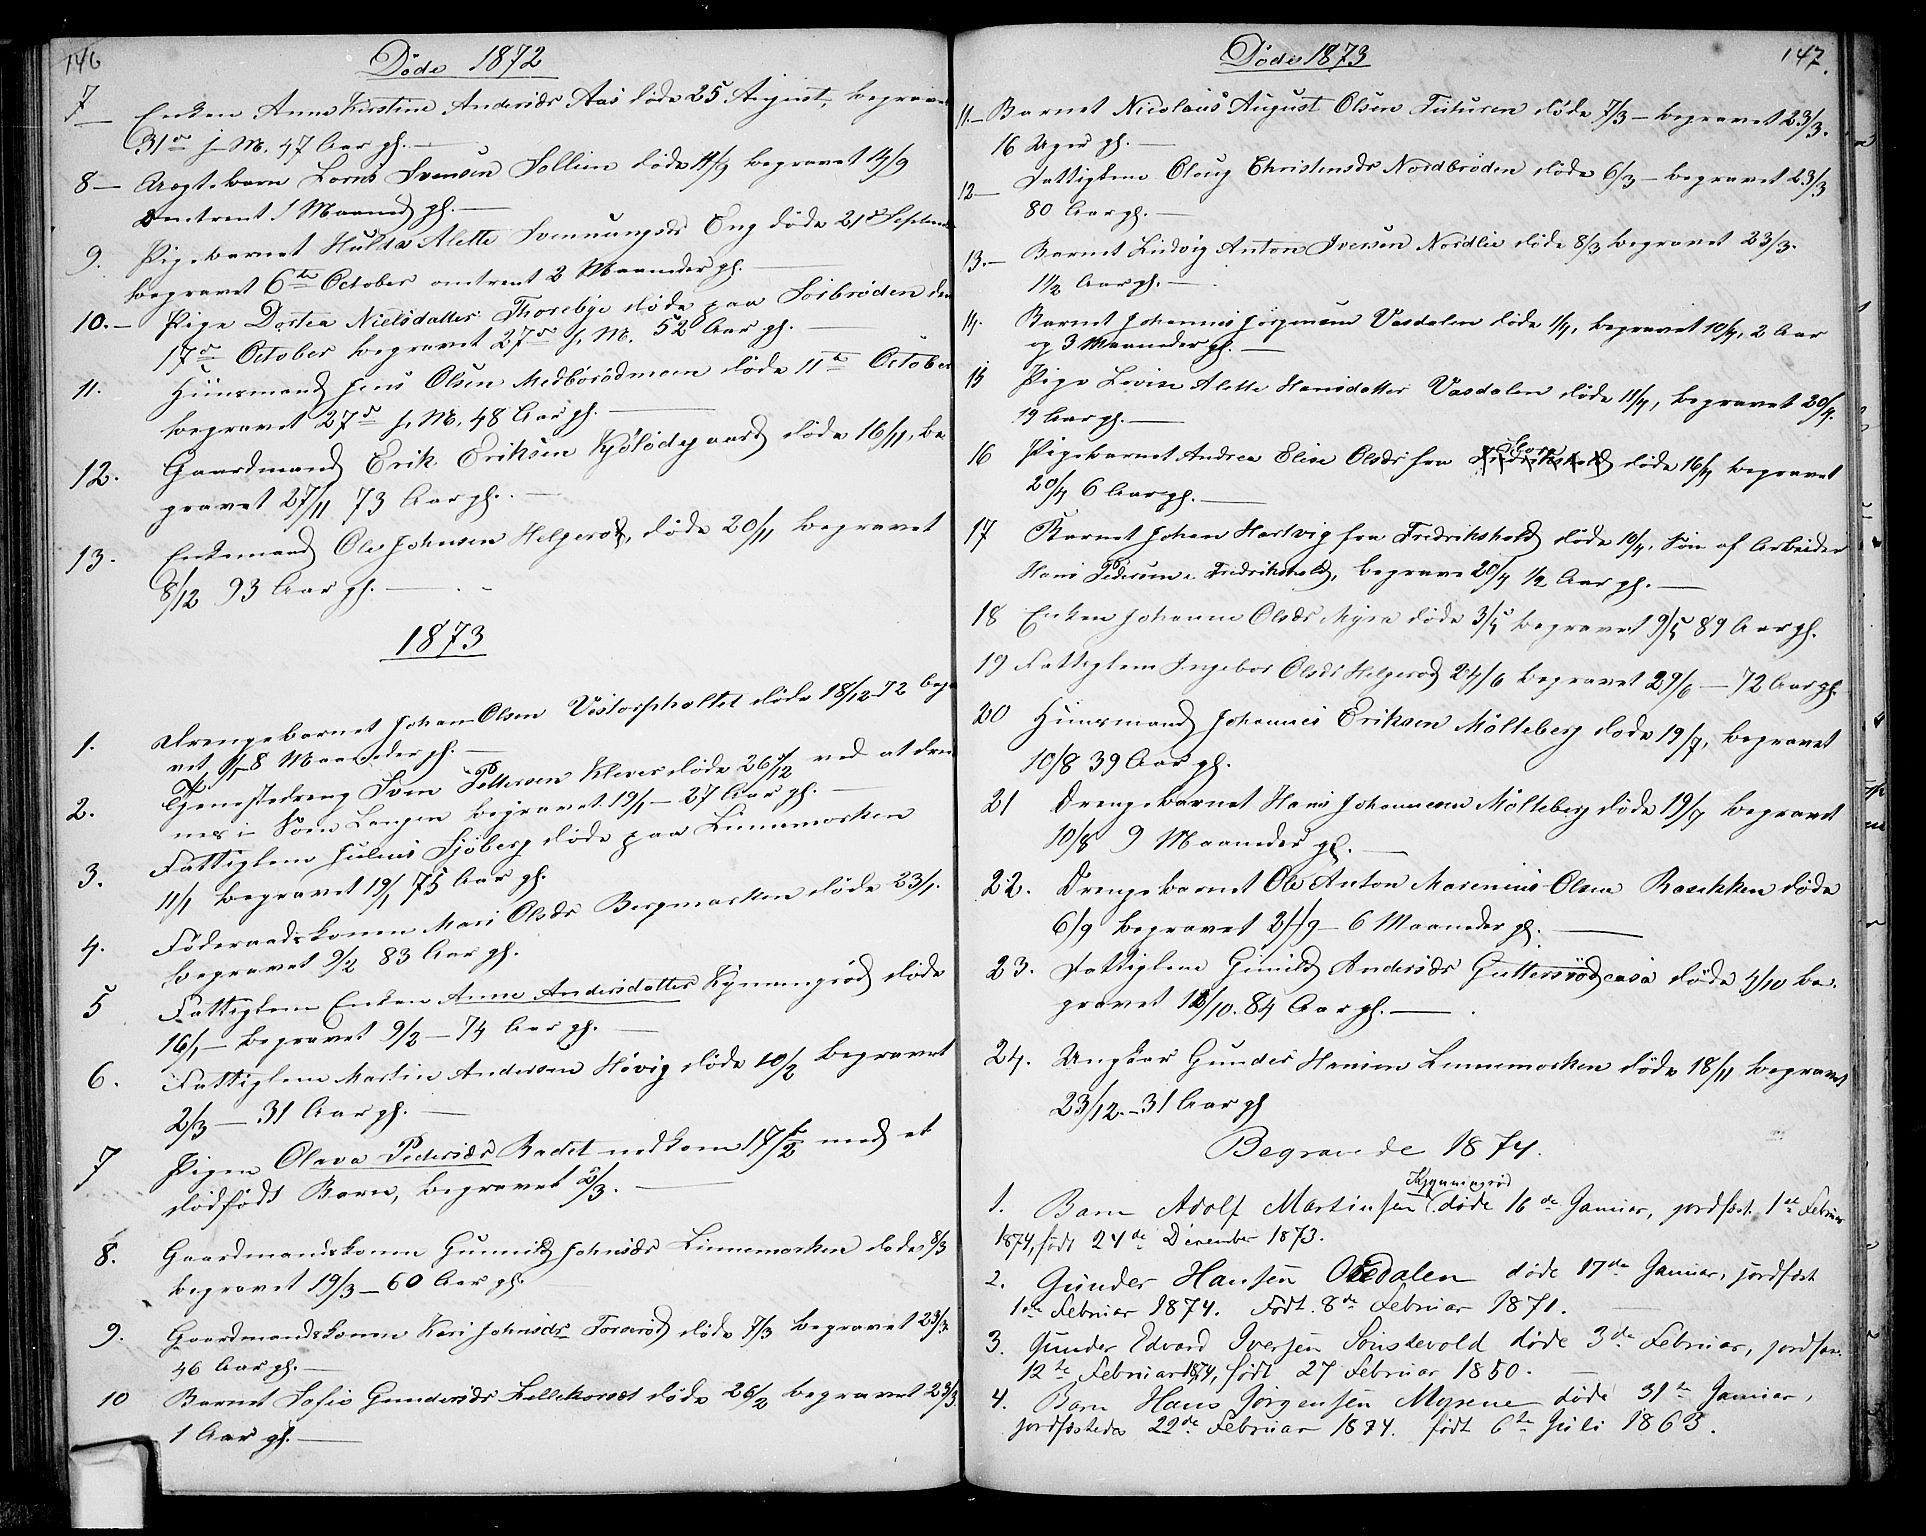 146
Döde 1872
7 Enken Anne Kirstine Andersdr Aas döde 25 August, begravet
31te s. M. 47 Aar gl.
8 – Uegte barn Svensen Sollien döde 11/9 begravet 14/9
omtrent 1 Maaned gl.
9. Pigebarnet Hulda Alette Svennungsdr Eng döde 21d Septem
begravet 6te October omtrent 2 Maaneder gl.
10. – Pige Dortea Nielsdatter Thorebye döde paa Sörbröden den
17de October begravet 27de s. M. 52 Aar gl.
11. Huusmand Jens Olsen döde 11te October
begravet 27de s. M. 48 Aar gl.
12. Gaardmand Erik Eriksen döde 16/11, be
gravet 27/11 73 Aar gl.
13. Enkemand Ole Johnsen Helgeröd, döde 20/11 begravet
8/12 93 Aar gl.
1873
1. Drengebarnet Johan Olsen döde 18/12 72 begra
vet 8 Maaneder gl.
2. Tjenestedreng Sven Pettersen Klever döde 26/12 ved at dru
nes i begravet 19/1 – 27 Aar gl.
3. Fattiglem Julius Sjöberg döde paa Linnemorken
11/1 begravet 19/1 75 Aar gl.
4. Föderaadskonen Mari Olsdr Bergmarken döde 23/1.
begravet 9/2 83 Aar gl.
5 Fattiglem Enken Anne Andersdatter döde
16/1 – begravet 9/2 – 74 Aar gl.
6. Fattiglem Martin Andersen Hövig döde 10/2 begravet
2/3 – 31 Aar gl.
7 Pigen Olava Pedersdr Rödet nedkom 17/2 med et
dödfödt Barn, begravet 2/3.
8. Gaardmandskonen Gunnild Johnsdr Linnemorken döde 8/3
begravet 19/3 – 60 Aar gl.
9. Gaardmandskonen Kari Johnsdr Toreröd döde 7/3 begravet 23/3
46 Aar gl.
10 Barnet Sofie Gundersdr döde 26/2 begravet 23/3.
1 Aar gl.
147.
Döde 1873
11. – Barnet Nicolaus August Olsen döde 7/3 – begravet 23/3.
16 Uger gl.
12 – Fattiglem Oloug Christensdr Nordbröden döde 6/3 – begravet 23/3
80 Aar gl.
13. – Barnet Ludvig Anton Iversen Nordlie döde 8/3 begravet 23/3.
1 1/2 Aar gl.
14. Barnet Johannes Jörgensen Vasdalen döde 1/4, begravet 10/4, 2 Aar
og 3 Maaneder gl.
15 Pige Lovise Alette Hansdatter Vasdalen döde 11/4, begravet 20/4.
19 Aar gl.
16 Pigebarnet Andrea Elise Olsdr fra döde 16/4 begravet
20/4 6 Aar gl.
17 Barnet Johan Hartvig fra Fredrikshald döde 10/4. Sön af Arbeider
Hans Pedersen i Fredrikshald, begrave 20/4 1/2 Aar gl.
18 Enken Johanne Olsdr Myra döde 3/5 begravet 9/5 89 Aar gl.
19 Fattiglem Ingebor Olsdr Helgeröd 24/6 begravet 29/6 – 72 Aar gl.
20 Huusmand Johannes Eriksen Mölteberg döde 19/7, begravet
10/8 39 Aar gl.
21 Drengebarnet Hans Johannesen Mölteberg döde 19/7 begravet
10/8 9 Maaneder gl.
22. Drengebarnet Ole Anton Marenius Olsen Baschken döde
6/9 begravet 21/9 – 6 Maaneder gl.
23. Fattiglem Gunild Andersdr döde 4/10 be.
gravet 12/10. 84 Aar gl.
24. Ungkar Gunder Hansen Linnemorken döde 18/11 begravet
23/12 – 31 Aar gl
Begravede 1874.
Kynningröd
1. Barn Adolf Martinsen döde 16de Januar, jordfæst. 1ste Februar
1874, födt 24de December 1873.
2. Gunder Hansen Oxedalen döde 17de Januar, jordfæst
1ste Februar 1874. Födt. 8de Februar 1871.
3. Gunder Edvard Iversen Sönstevold döde 3de Februar, jordfæs.
12te Februar 1874, födt 27 Februar 1850.
4. Barn Hans Jörgensen Myrene döde 31te Januar,
jordfæstedes 22de Februar 1874. födt 6te Juli 1863.